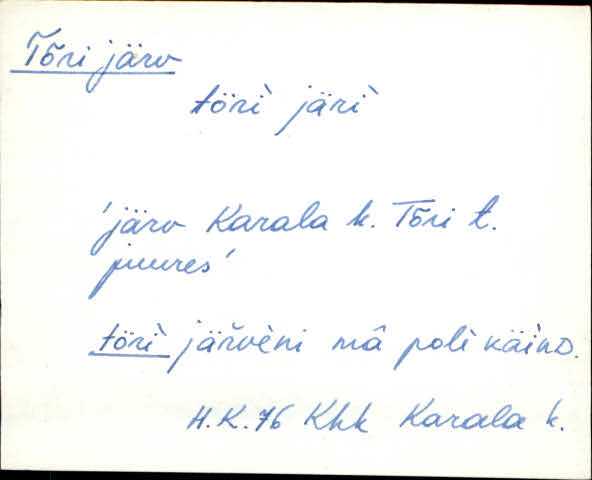 Tõri järv
törì järì
'järv Karala k. Tõri t.
juures'
törì jäřvèni mâ polè käino.
H.K.76 Khk Karala k.